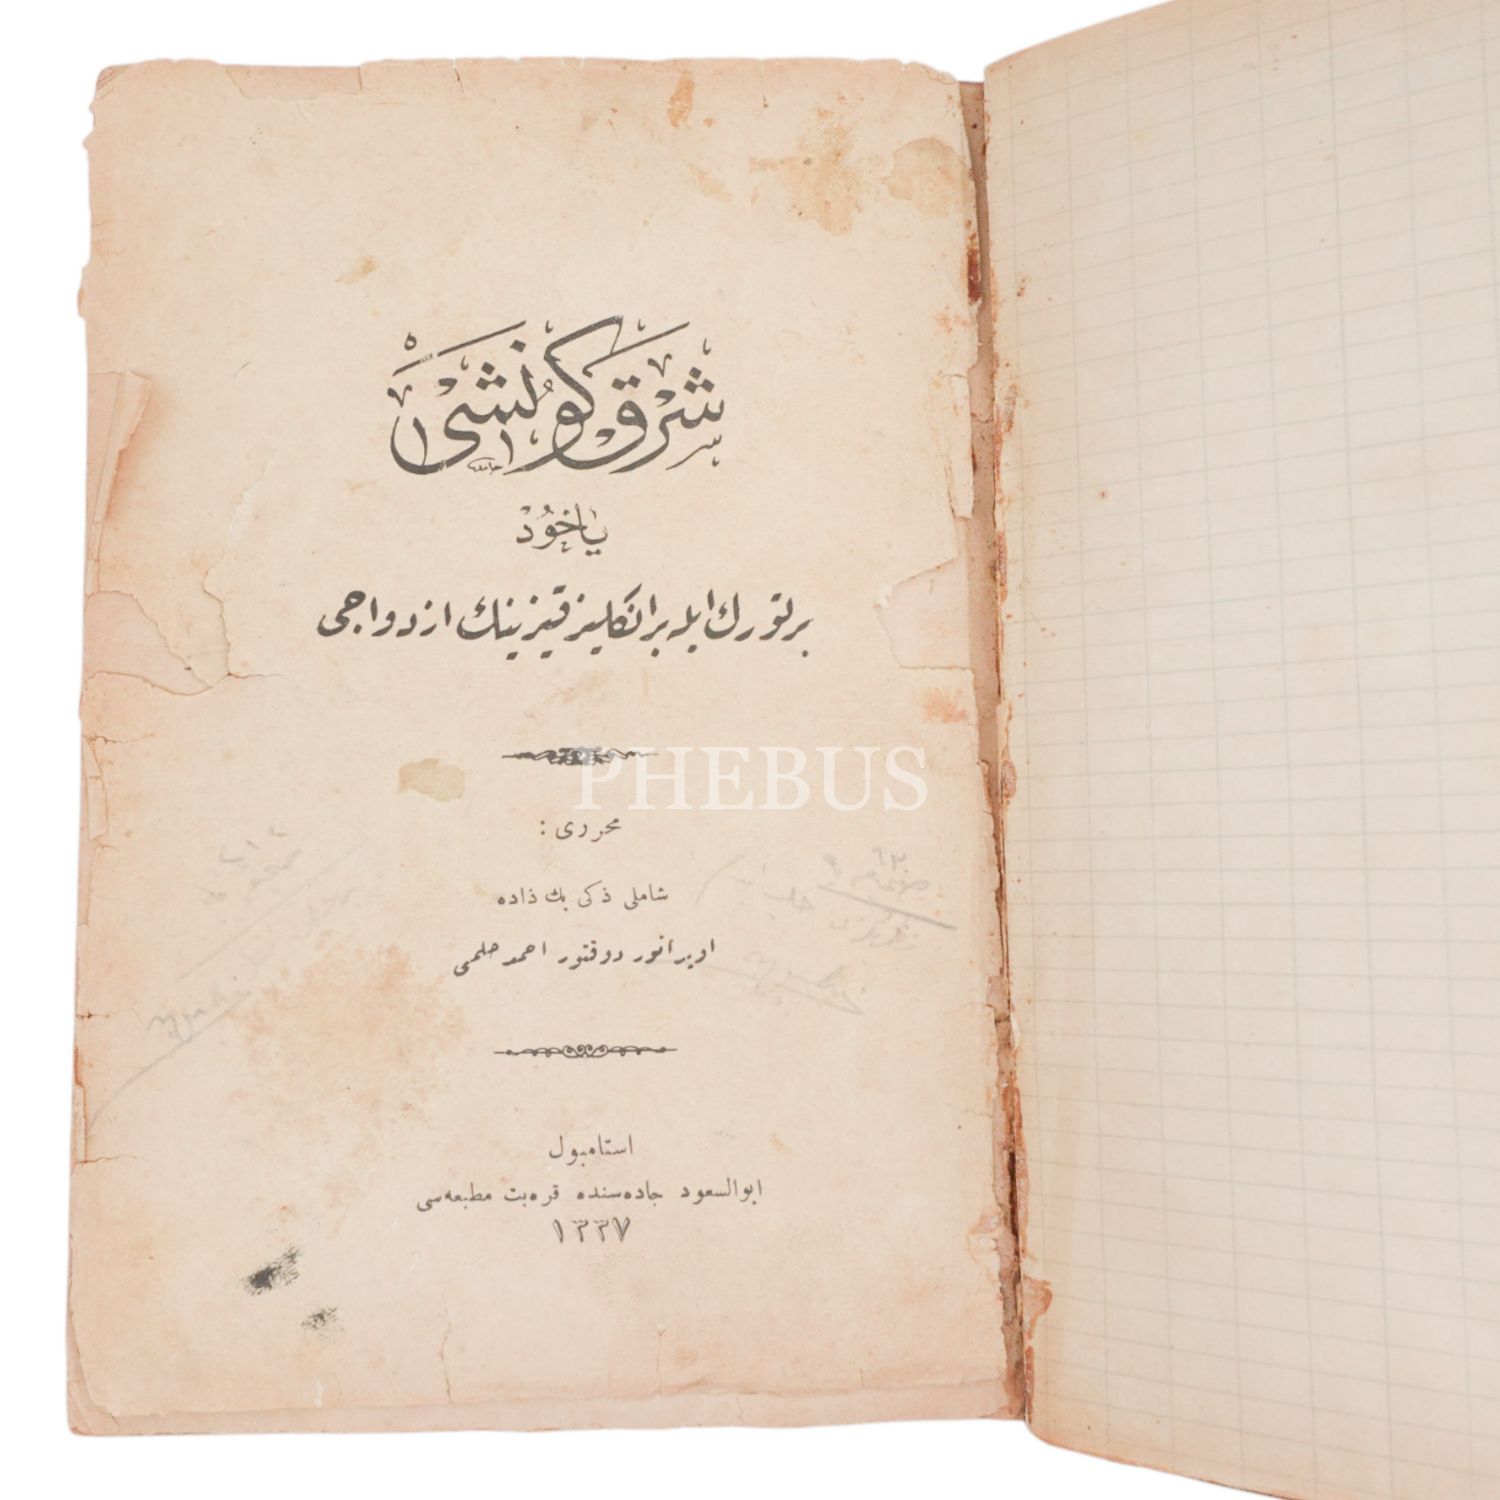 شرق كونشى
ياخود
بر تورك ايله بر انكليز قيزينك ازدواجى
PHEBUS
محررى :
شاملى ذكى بك زاده
اوپراتور دوقتور احمد حلمى
استامبول
ابوالسعود جاده‌سنده قره‌بت مطبعه‌سى
١٣٣٧